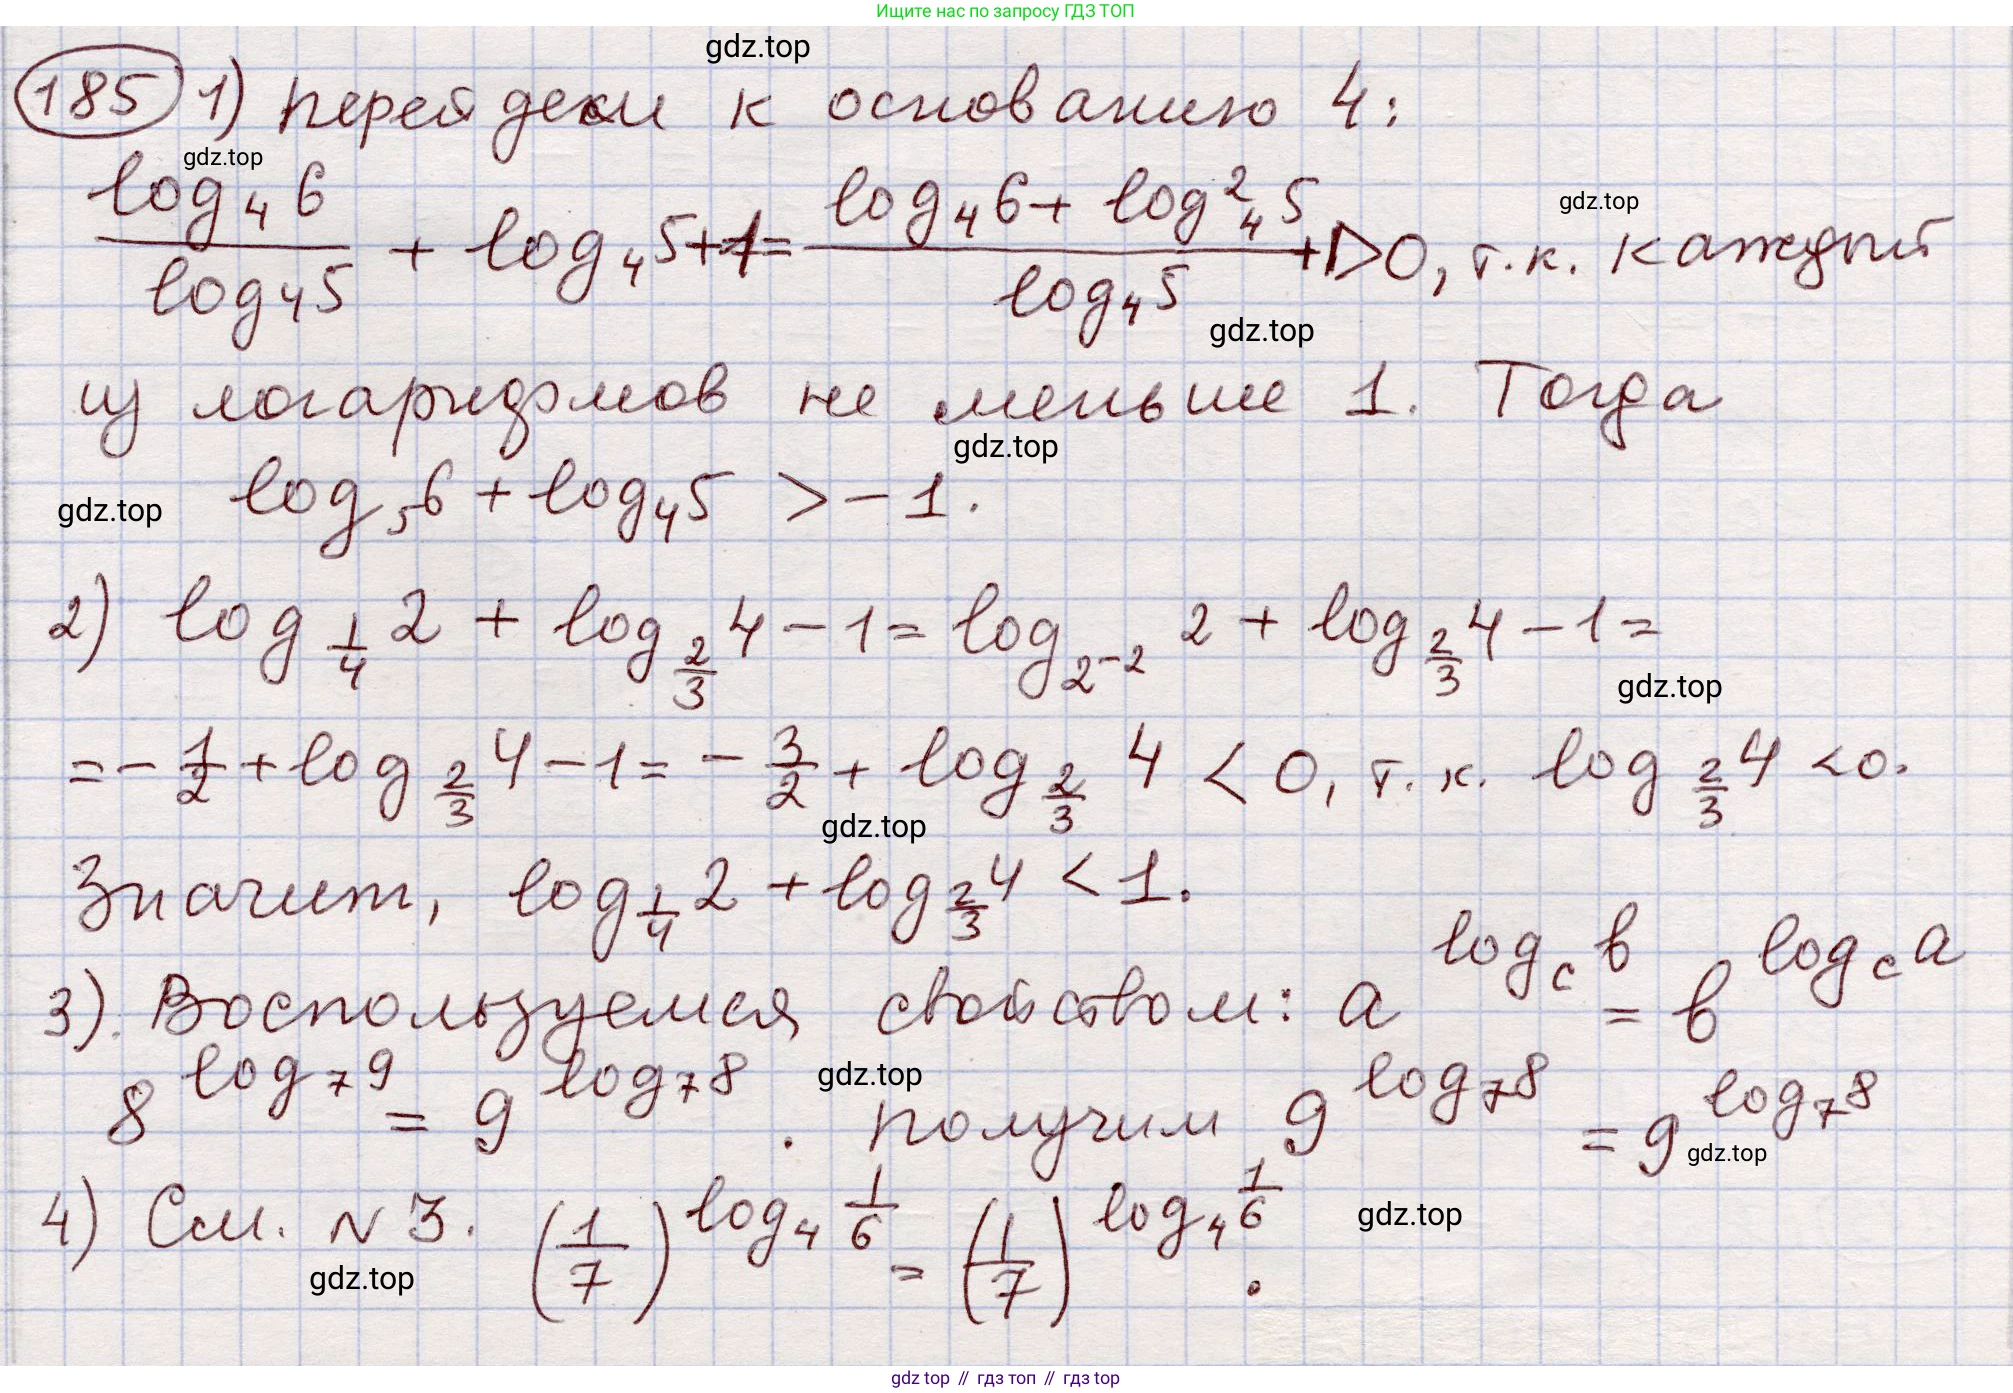 Ищите нас по запросу ГДЗ ТОП
gdz.top
185 1) перейдем к основанию 4:
gdz.top
log₄ 6 / log₄ 5 + log₄ 5 + 1 = (log₄ 6 + log²₄ 5) / log₄ 5 + 1 > 0, т.к. каждый
gdz.top
gdz.top
из логарифмов не меньше 1. Тогда
gdz.top
log₅ 6 + log₄ 5 > -1.
gdz.top
2) log_{1/4} 2 + log_{2/3} 4 - 1 = log_{2⁻²} 2 + log_{2/3} 4 - 1 =
gdz.top
= - 1/2 + log_{2/3} 4 - 1 = - 3/2 + log_{2/3} 4 < 0, т.к. log_{2/3} 4 < 0.
gdz.top
Значит, log_{1/4} 2 + log_{2/3} 4 < 1.
3). Воспользуемся свойством: a^{log_c b} = b^{log_c a}
8^{log₇ 9} = 9^{log₇ 8}. получим 9^{log₇ 8} = 9^{log₇ 8}
gdz.top
gdz.top
4) См. N 3. (1/7)^{log₄ 1/6} = (1/7)^{log₄ 1/6}.
gdz.top
gdz.top
gdz top // гдз топ // гдз top